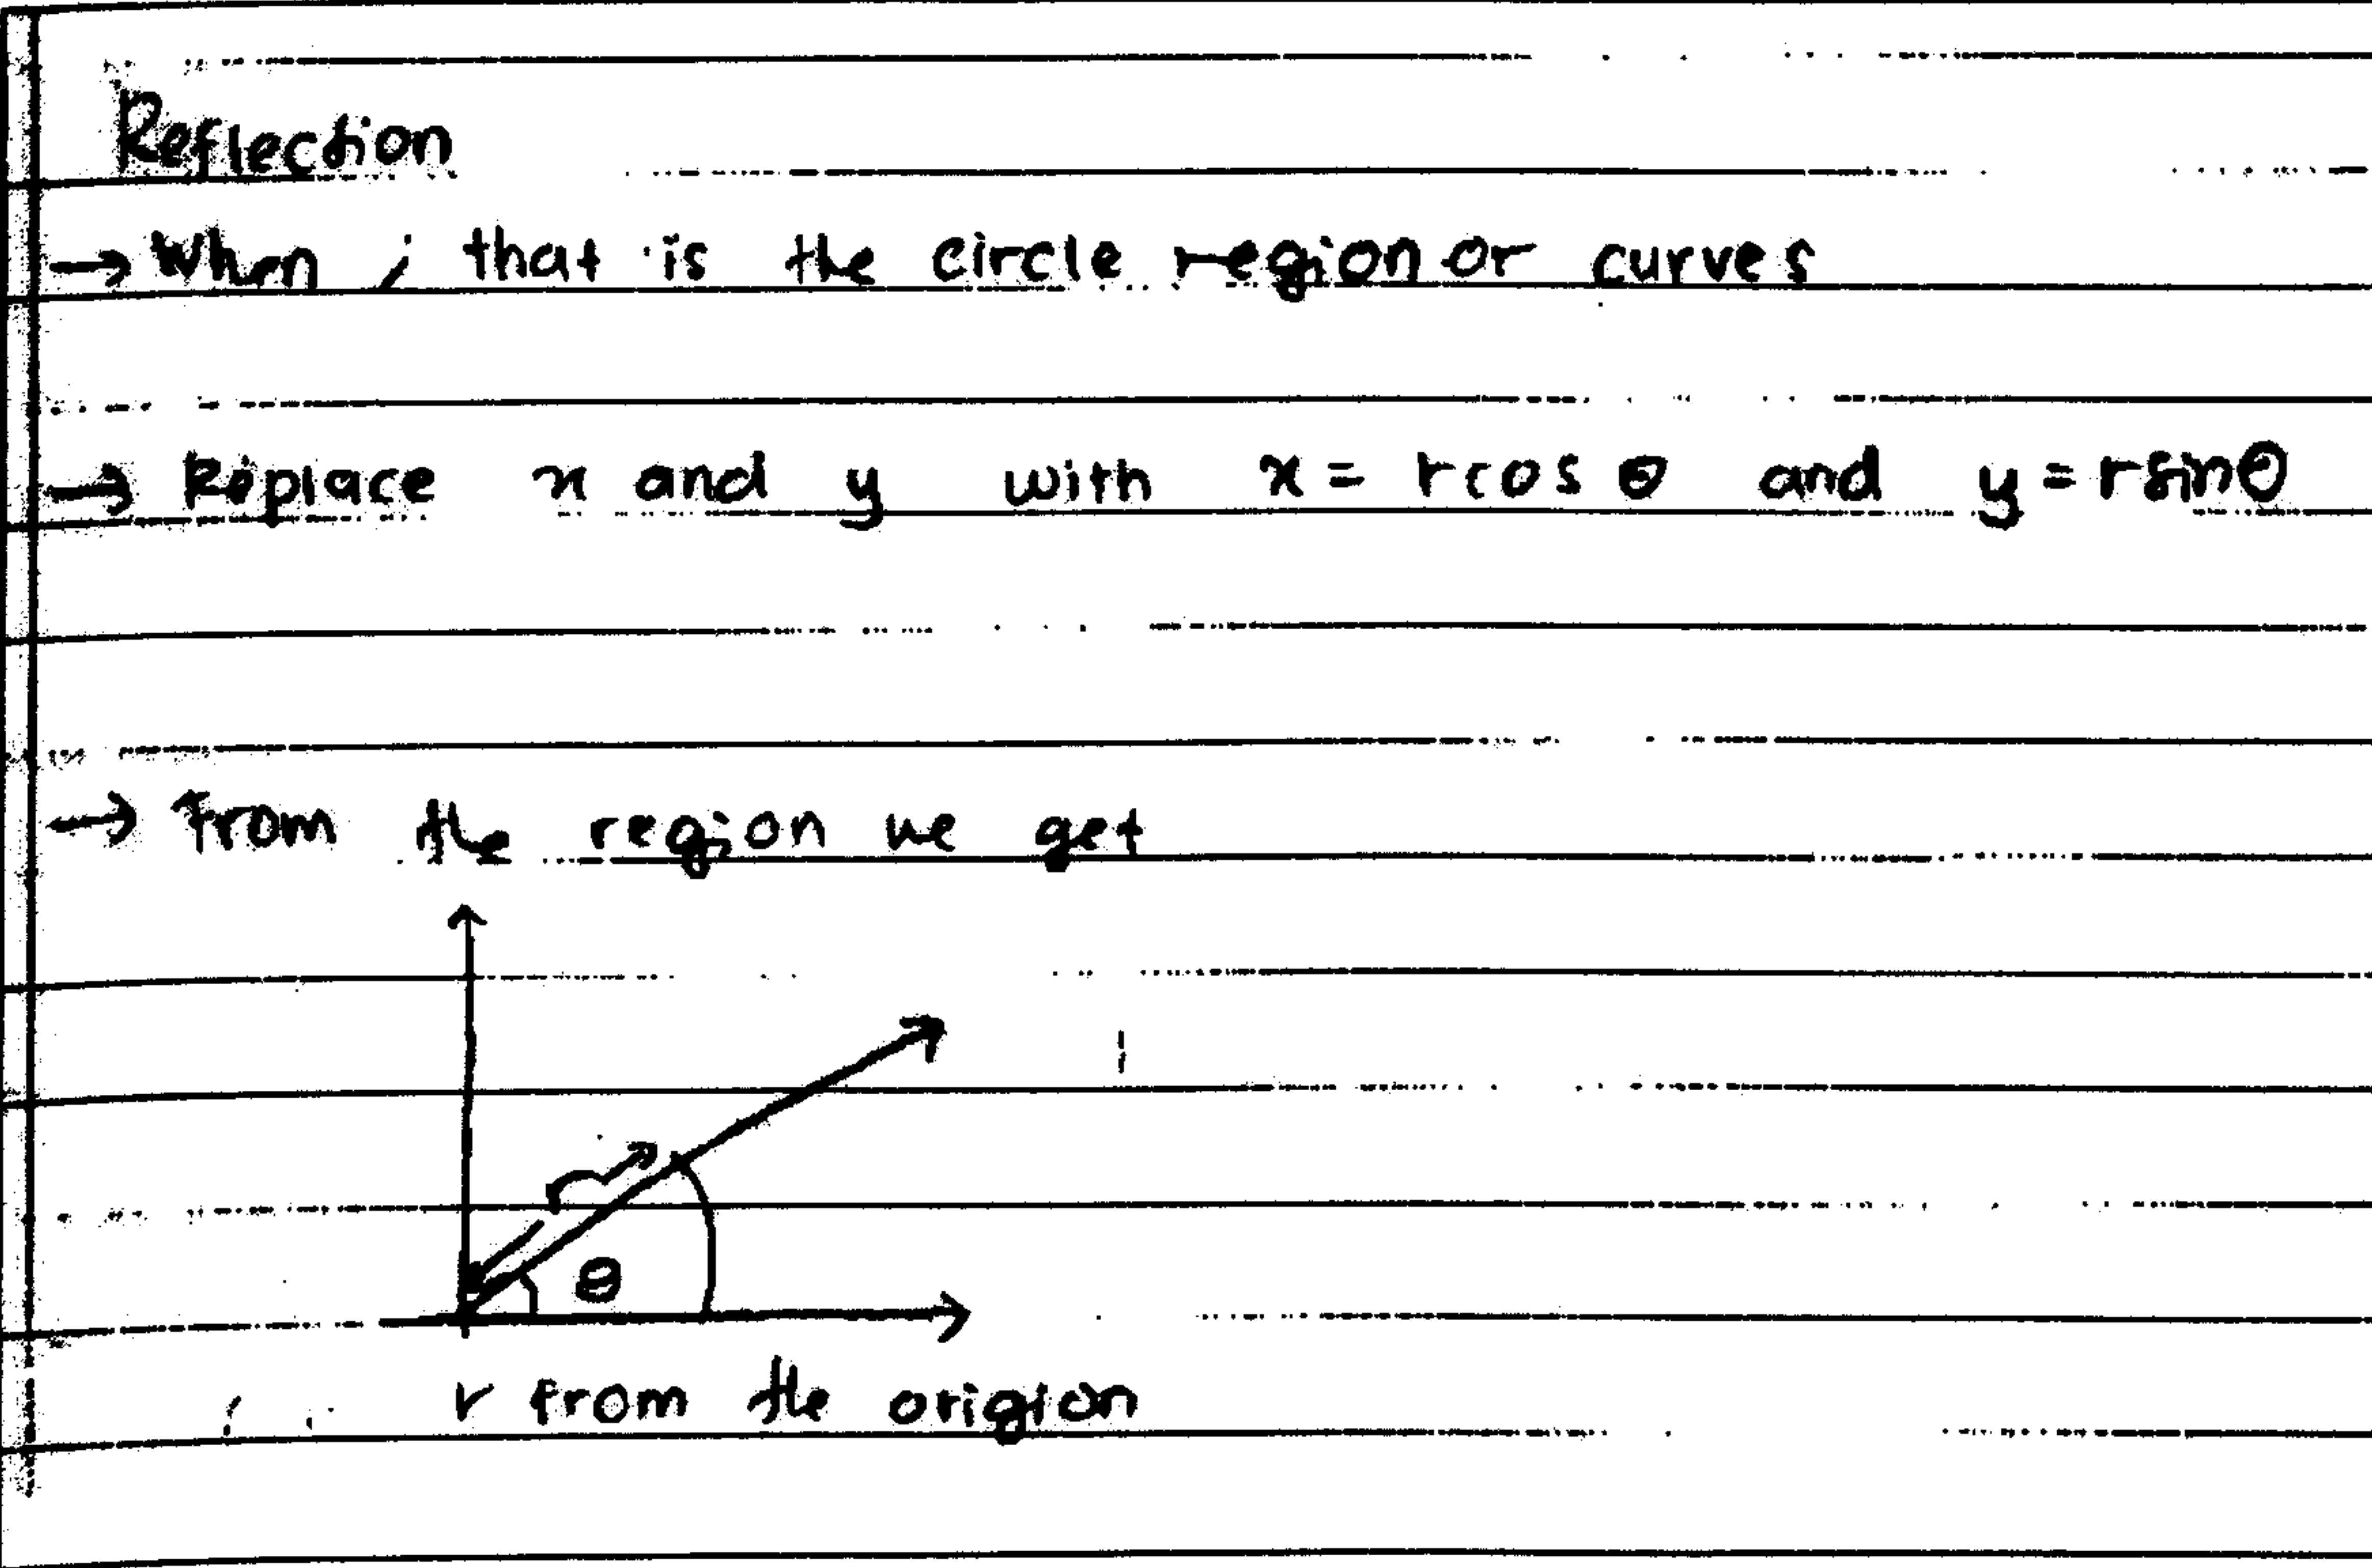 Reflection
→ When ; that is the circle region or curves
→ Replace x and y with x = r cos θ and y = r sin θ
→ From the region we get
r
θ
r from the origion